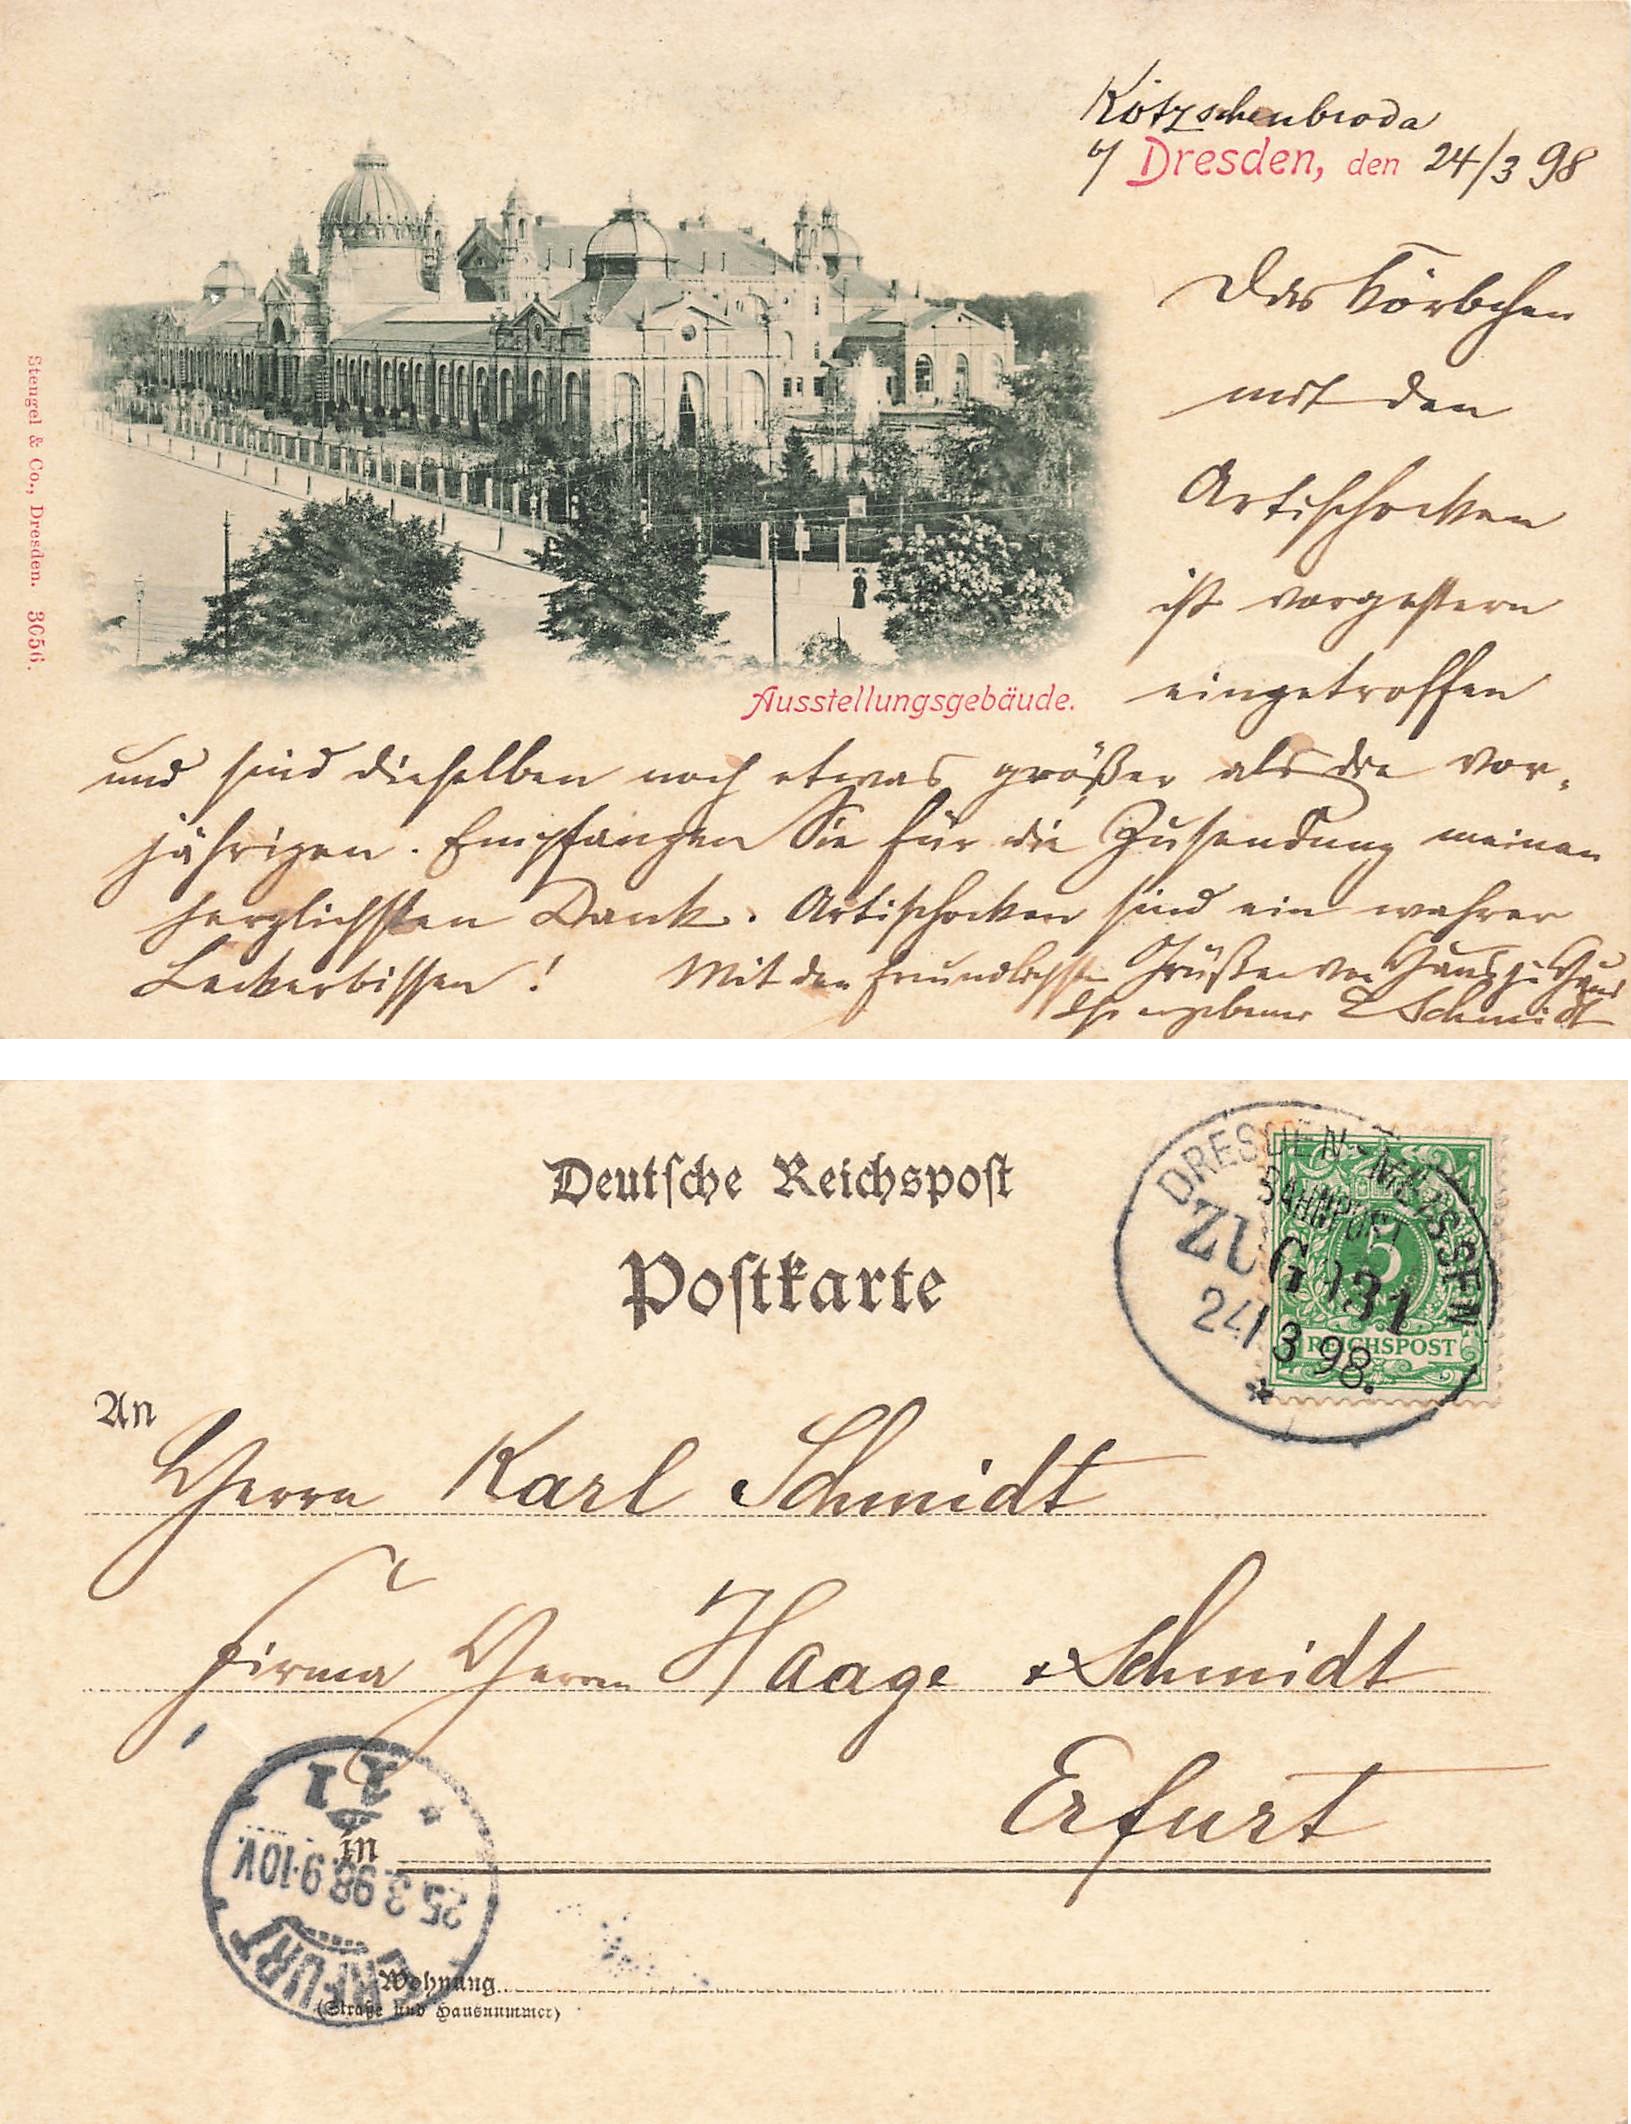 Kötzschenbroda
b/ Dresden, den 24/3 98
Das Körbchen
mit den
Artischocken
ist vorgestern
eingetroffen
Ausstellungsgebäude.
Stengel & Co., Dresden. 3056.
und sind dieselben noch etwas größer als die vor-
jährigen. Empfangen Sie für die Zusendung meinen
herzlichsten Dank. Artischocken sind ein wahrer
Leckerbissen! Mit den freundlichsten Grüßen von Haus zu Haus
Ihr ergebener Schmidt
Deutsche Reichspost
Postkarte
DRESDEN-MEISSEN
BAHNPOST
ZUG 131
24/3 98.
5
REICHSPOST
An
Herrn Karl Schmidt
Firma Herren Haage & Schmidt
Erfurt
in
ERFURT
25.3.98.9-10V.
Wohnung
(Straße und Hausnummer)